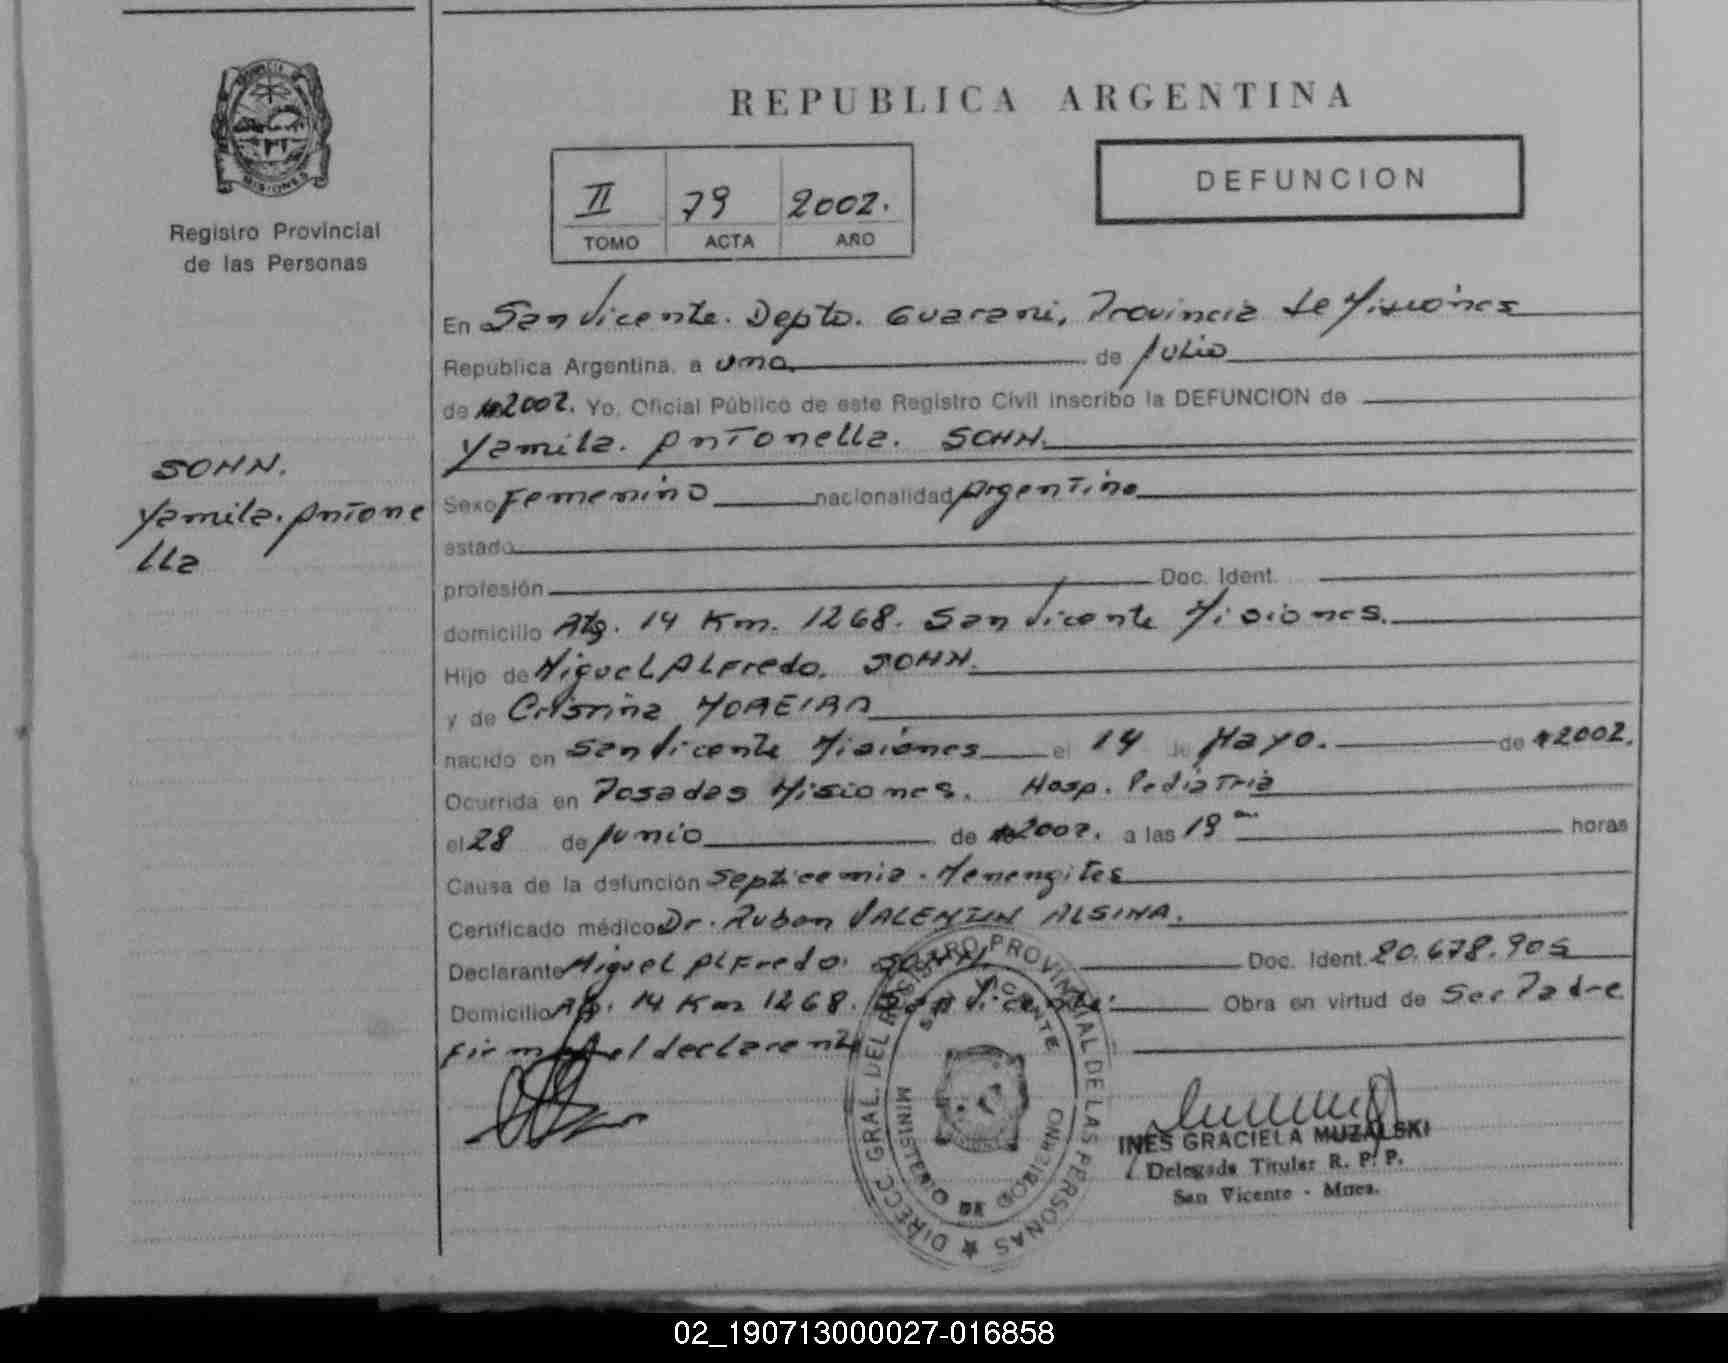 REPUBLICA ARGENTINA
PROVINCIA DE
MISIONES
Registro Provincial
de las Personas
II 79 2002.
TOMO ACTA AÑO
DEFUNCION
En San Vicente. Depto. Guarani, Provincia de Misiones
República Argentina, a uno de Julio
de 2002. Yo, Oficial Público de este Registro Civil inscribo la DEFUNCION de
Yamila. Antonella. SOHN.
SOHN.
Yamila. Antone
lla
Sexo Femenino nacionalidad Argentino
estado
profesión Doc. Ident.
domicilio Rtg. 14 Km. 1268. San Vicente Misiones.
Hijo de Miguel Alfredo. SOHN.
y de Cristina MOREIRA
nacido en San Vicente Misiones el 14 de Mayo. de 2002.
Ocurrida en Posadas Misiones. Hosp. Pediatria
el 28 de Junio de 2002. a las 19 horas
Causa de la defunción Septicemia. Menengites
Certificado médico Dr. Ruben VALENTIN ALSINA.
Declarante Miguel Alfredo. SOHN. Doc. Ident. 20.678.905
Domicilio 14 Km 1268. San Vicente. Obra en virtud de Ser Padre
firma el declarante
DIRECC. GRAL. DEL REGISTRO PROVINCIAL DE LAS PERSONAS
SAN VICENTE
MINISTERIO DE GOBIERNO
INES GRACIELA MUZALSKI
Delegada Titular R. P. P.
San Vicente - Mnes.
02_190713000027-016858